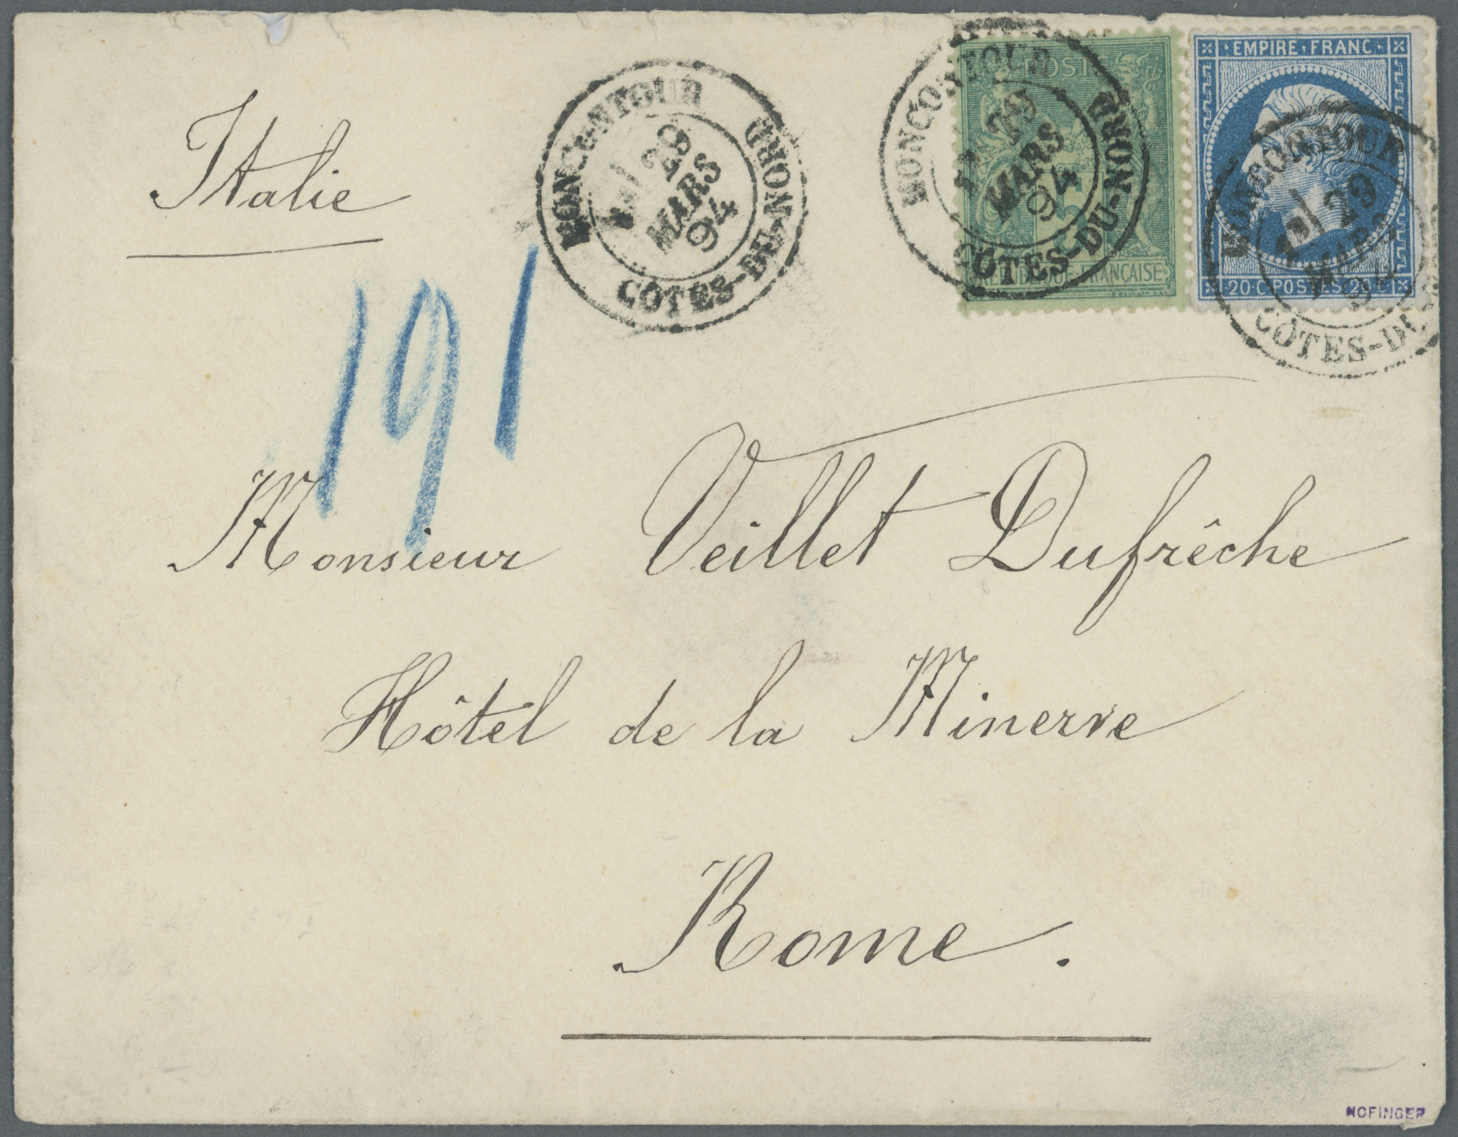 Italie
191
MONCONTOUR
29
MARS
94
CÔTES-DU-NORD
MONCONTOUR
29
MARS
94
CÔTES-DU-NORD
POST
FRANÇAISE
EMPIRE FRANC
20 C POSTES 20
MONCONTOUR
29
MARS
CÔTES-DU
Monsieur Veillet Dufrêche
Hôtel de la Minerve
Rome.
NOFINGER